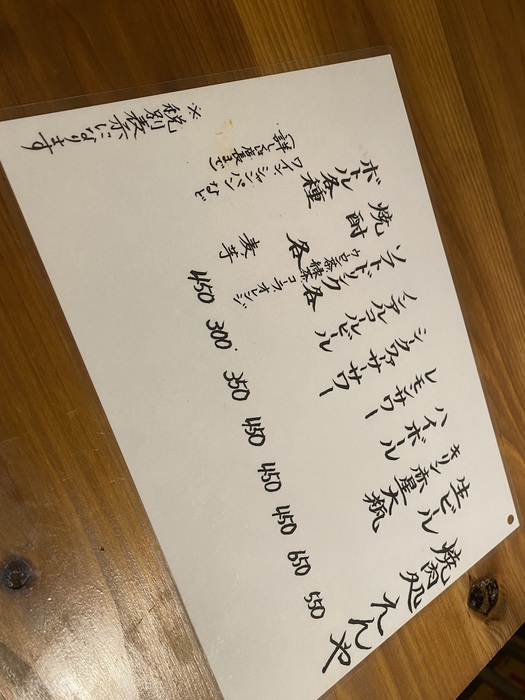 焼肉処 れんや
生ビール 550
キリン赤星大瓶 650
ハイボール 450
レモンサワー 450
シークヮーサーサワー 450
ノンアルコールビール 350
ソフトドリンク各 300
ウーロン茶 緑茶
コーラ オレンジ
焼酎 各 450
麦 芋
ボトル各種
ワイン シャンパンなど
※税別表示になります